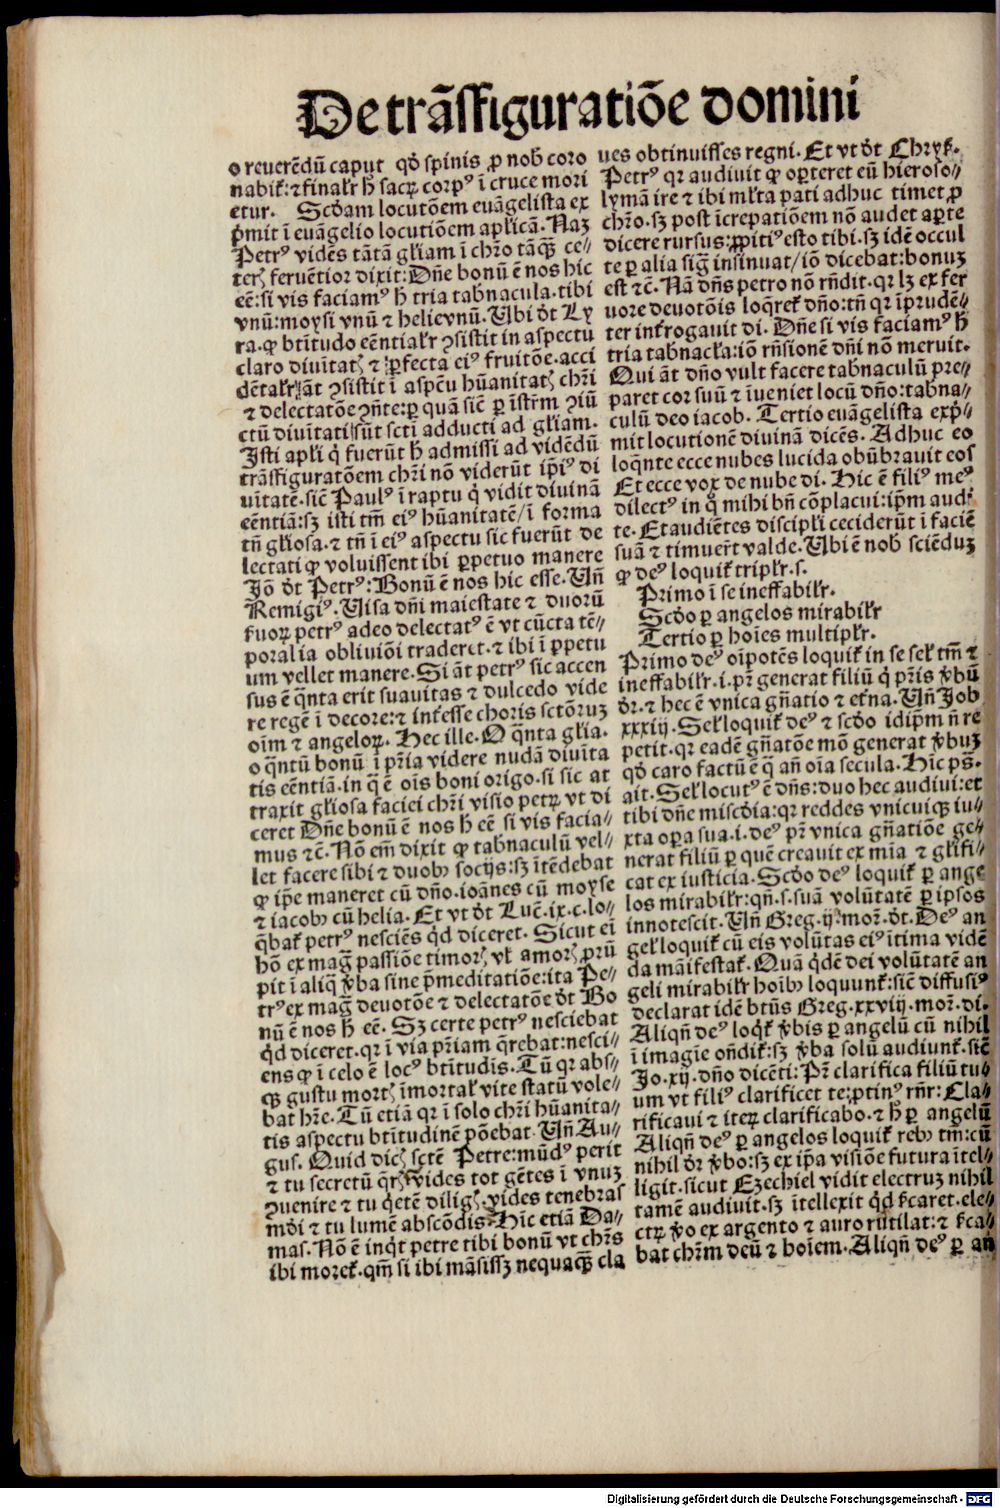 De trãsfiguratiõe domini
o reuerẽdũ caput qđ spinis ꝓ nob̃ coro
nabit̃: ⁊ finalr̃ h̃ sacꝝ corpꝰ ĩ cruce mori
etur. Scd̃am locutõem euãgelista ex
p̃mit ĩ euãgelio locutiõem apłicã. Naȝ
Petrꝰ vidẽs tãtã głiam ĩ chr̃o tãqȝ ce⸗
terꝭ feruẽtior dixit: Dñe bonũ ẽ nos hic
eẽ: si vis faciamꝰ h̃ tria tabñacula. tibi
vnũ: moysi vnũ ⁊ helie vnũ. Ubi dt̃ Ly
ra. ꝙ btĩtudo eẽntialr̃ ꝯsistit in aspectu
claro diuĩtatꝭ ⁊ ꝑfecta eiꝰ fruitõe. acci
dẽtalr̃ ãt ꝯsistit ĩ aspcũ hũanitatꝭ chr̃i
⁊ delectatõe ꝯñte: ꝑ quã sic̃ ꝑ ĩstr̃m ꝯiũ
ctũ diuĩtati sũt scti adducti ad głiam.
Isti apłi q̇ fuerũt h̃ admissi ad vidẽdũ
trãsfiguratõem chr̃i nõ viderũt ip̃iꝰ di
uĩtatẽ. sic̃ Paulꝰ ĩ raptu q̇ vidit diuinã
eẽntiã: sȝ isti tm̃ eiꝰ hũanitatẽ/ ĩ forma
tñ głiosa. ⁊ tñ ĩ eiꝰ aspectu sic fuerũt de
lectati ꝙ voluissent ibi ꝑpetuo manere
Iõ dt̃ Petrꝰ: Bonũ ẽ nos hic esse. Uñ
Remigiꝰ. Uisa dñi maiestate ⁊ duorũ
suoꝝ petrꝰ adeo delectatꝰ ẽ vt cũcta tẽ⸗
poralia obliuiõi traderet. ⁊ ibi ĩ ꝑpetu
um vellet manere. Si ãt petrꝰ sic accen
sus ẽ q̃nta erit suauitas ⁊ dulcedo vide
re regẽ ĩ decore: ⁊ inťesse choris sctõruȝ
oĩm ⁊ angeloꝝ. Hec ille. O q̃nta głia.
o q̃ntũ bonũ ĩ pr̃ia videre nudã diuĩta
tis eẽntiã. in q̃ ẽ oĩs boni origo. si sic at
traxit głiosa faciei chr̃i visio petꝝ vt di
ceret Dñe bonũ ẽ nos h̃ eẽ si vis facia⸗
mus ⁊c̃. Nõ em̃ dixit ꝙ tabñaculũ vel⸗
let facere sibi ⁊ duobꝰ socijs: sȝ ĩtẽdebat
ꝙ ip̃e maneret cũ dño. ioãnes cũ moyse
⁊ iacobꝰ cũ helia. Et vt dt̃ Luc̃. ix. c. lo⸗
q̃bat̃ petrꝰ nesciẽs qd̃ diceret. Sicut ei
hõ ex mag̃ passiõe timorꝭ vł amorꝭ ꝓrũ
pit ĩ aliq̃ v̓ba sine p̃meditatiõe: ita Pe⸗
trꝰ ex mag̃ deuotõe ⁊ delectatõe dt̃ Bo
nũ ẽ nos h̃ eẽ. Sȝ certe petrꝰ nesciebat
qd̃ diceret. qr ĩ via pr̃iam q̃rebat: nesci⸗
ens ꝙ ĩ celo ẽ locꝰ btĩtudĩs. Tũ qr abs⸗
qȝ gustu mortꝭ ĩmortał vite statũ vole⸗
bat hr̃e. Tũ etiã qr ĩ solo chr̃i hũanita⸗
tis aspectu btĩtudinẽ põebat. Uñ Au⸗
gus. Quid dicꝭ sctẽ Petre: mũdꝰ perit
⁊ tu secretũ qrꝭ: vides tot gẽtes ĩ vnuȝ
ꝯuenire ⁊ tu q̇etẽ diligꝭ. vides tenebras
mũdi ⁊ tu lumẽ abscõdis. Hĩc etiã Da⸗
mas. Nõ ẽ inq̇t petre tibi bonũ vt chr̃s
ibi moret̃. qm̃ si ibi mãsissȝ nequaqȝ̃ cla
ues obtinuisses regni. Et vt dt̃ Chrys.
Petrꝰ qr audiuit ꝙ oꝑteret eũ hieroso⸗
lymã ire ⁊ ibi młta pati adhuc timet ꝓ
chr̃o. sȝ post ĩcrepatiõem nõ audet aꝑte
dicere rursus: ꝓpitiꝰ esto tibi. sȝ idẽ occul
te ꝑ alia sig̃ insinuat/ iõ dicebat: bonuȝ
est ⁊c̃. Nã dñs petro nõ rñdit. qr lȝ ex fer
uore deuotõis loq̃ret̃ dño: tñ qr ĩprudẽ⸗
ter inťrogauit di. Dñe si vis faciamꝰ h̃
tria tabñacła: iõ rñsionẽ dñi nõ meruit.
Qui ãt dño vult facere tabñaculũ pre⸗
paret cor suũ ⁊ ĩueniet locũ dño: tabna⸗
culũ deo iacob. Tertio euãgelista exp̃⸗
mit locutionẽ diuinã dicẽs. Adhuc eo
loq̃nte ecce nubes lucida obũbrauit eos
Et ecce vox de nube di. Hic ẽ filiꝰ meꝰ
dilectꝰ in q̃ mihi bñ cõplacui: ip̃m audi
te. Et audiẽtes discipłi ceciderũt ĩ faciẽ
suã ⁊ timuer̃t valde. Ubi ẽ nob̃ sciẽduȝ
ꝙ deꝰ loquit̃ triplr̃. s.
Primo ĩ se ineffabilr̃.
Scd̃o ꝑ angelos mirabilr̃
Tertio ꝑ hoĩes multiplr̃.
Primo deꝰ oĩpotẽs loquit̃ in se seł tm̃ ⁊
ineffabilr̃. i. pr̃ generat filiũ q̇ pr̃is v̓bũ
dr̃. ⁊ hec ẽ vnica gñatio ⁊ eťna. Uñ Iob
xxxiij. Seł loquit̃ deꝰ ⁊ scd̃o idip̃m ñ re
petit. qr eadẽ gñatõe mõ generat v̓buȝ
qđ caro factũ ẽ q̃ añ oĩa secula. Hĩc ps.
ait. Seł locutꝰ ẽ dñs: duo hec audiui: et
tibi dñe miscd̃ia: qr reddes vnicuiqȝ iu⸗
xta oꝑa sua. i. deꝰ pr̃ vnica gñatiõe ge⸗
nerat filiũ ꝑ quẽ creauit ex mĩa ⁊ głifi⸗
cat ex iusticia. Scd̃o deꝰ loquit̃ ꝑ ange
los mirabilr̃: qñ. s. suã volũtatẽ ꝑ ipsos
innotescit. Uñ Greg. ij. mor̃. dt̃. Deꝰ an
geł loquit̃ cũ eis volũtas eiꝰ ĩtima vidẽ
da mãifestat̃. Quã q̇dẽ dei volũtatẽ an
geli mirabilr̃ hoĩbꝰ loquunt̃: sic̃ diffusiꝰ
declarat idẽ btũs Greg. xxviij. mor̃. di.
Aliqñ deꝰ loq̇t̃ v̓bis ꝑ angelũ cũ nihil
ĩ imagĩe oñdit̃: sȝ v̓ba solũ audiunt̃. sic̃
Io. xij. dño dicẽti: Pr̃ clarifica filiũ tu⸗
um vt filiꝰ clarificet te: ꝓtinꝰ rñr̃: Cla⸗
rificaui ⁊ iteꝝ clarificabo. ⁊ h̃ ꝑ angelũ
Aliqñ deꝰ ꝑ angelos loquit̃ rebꝰ tm̃: cũ
nihil dr̃ v̓bo: sȝ ex ip̃a visiõe futura ĩtel⸗
ligit. sicut Ezechiel vidit electruȝ nihil
tamẽ audiuit. sȝ ĩtellexit qd̃ ſcaret. ele⸗
ctꝝ v̓o ex argento ⁊ auro rutilat: ⁊ ſca⸗
bat chr̃m deũ ⁊ hoĩem. Aliqñ deꝰ ꝑ an
Digitalisierung gefördert durch die Deutsche Forschungsgemeinschaft - DFG